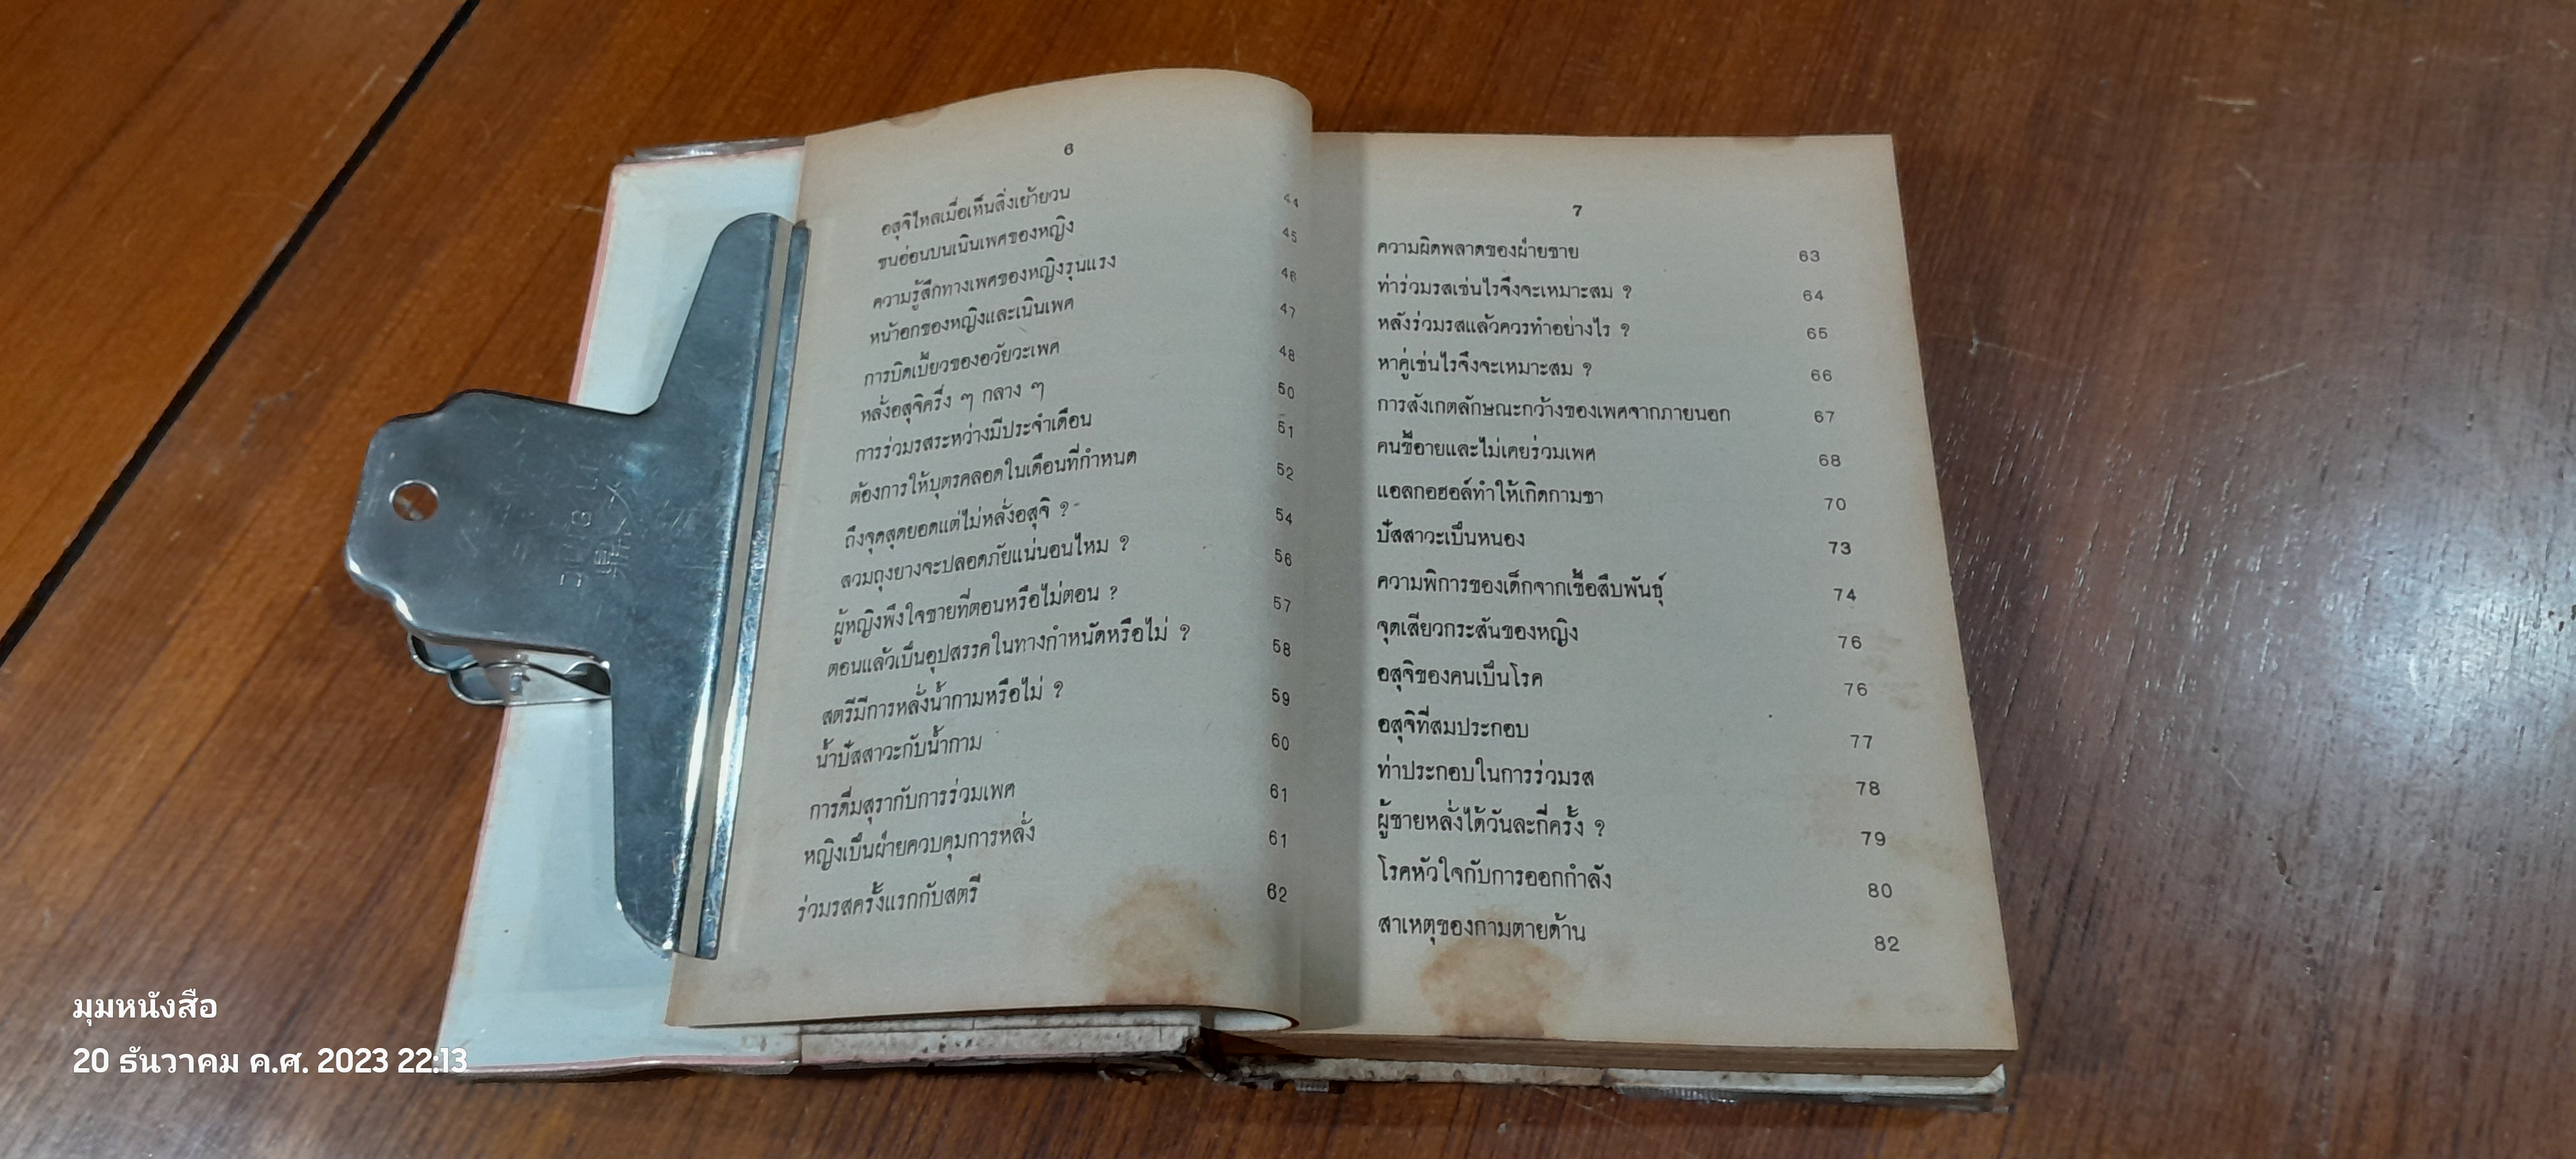 6
อสุจิไหลเมื่อเห็นสิ่งเย้ายวน 44
ขนอ่อนบนเนินเพศของหญิง 45
ความรู้สึกทางเพศของหญิงรุนแรง 46
หน้าอกของหญิงและเนินเพศ 47
การบิดเบี้ยวของอวัยวะเพศ 48
หลั่งอสุจิครึ่ง ๆ กลาง ๆ 50
การร่วมรสระหว่างมีประจำเดือน 51
ต้องการให้บุตรคลอดในเดือนที่กำหนด 52
ถึงจุดสุดยอดแต่ไม่หลั่งอสุจิ ? 54
สวมถุงยางจะปลอดภัยแน่นอนไหม ? 56
ผู้หญิงพึงใจชายที่ตอนหรือไม่ตอน ? 57
ตอนแล้วเป็นอุปสรรคในทางกำหนัดหรือไม่ ? 58
สตรีมีการหลั่งน้ำกามหรือไม่ ? 59
น้ำปัสสาวะกับน้ำกาม 60
การดื่มสุรากับการร่วมเพศ 61
หญิงเป็นฝ่ายควบคุมการหลั่ง 61
ร่วมรสครั้งแรกกับสตรี 62
7
ความผิดพลาดของฝ่ายชาย 63
ท่าร่วมรสเช่นไรจึงจะเหมาะสม ? 64
หลังร่วมรสแล้วควรทำอย่างไร ? 65
หาคู่เช่นไรจึงจะเหมาะสม ? 66
การสังเกตลักษณะกว้างของเพศจากภายนอก 67
คนขี้อายและไม่เคยร่วมเพศ 68
แอลกอฮอล์ทำให้เกิดกามชา 70
ปัสสาวะเป็นหนอง 73
ความพิการของเด็กจากเชื้อสืบพันธุ์ 74
จุดเสียวกระสันของหญิง 76
อสุจิของคนเป็นโรค 76
อสุจิที่สมประกอบ 77
ท่าประกอบในการร่วมรส 78
ผู้ชายหลั่งได้วันละกี่ครั้ง ? 79
โรคหัวใจกับการออกกำลัง 80
สาเหตุของกามตายด้าน 82
มุมหนังสือ
20 ธันวาคม ค.ศ. 2023 22:13